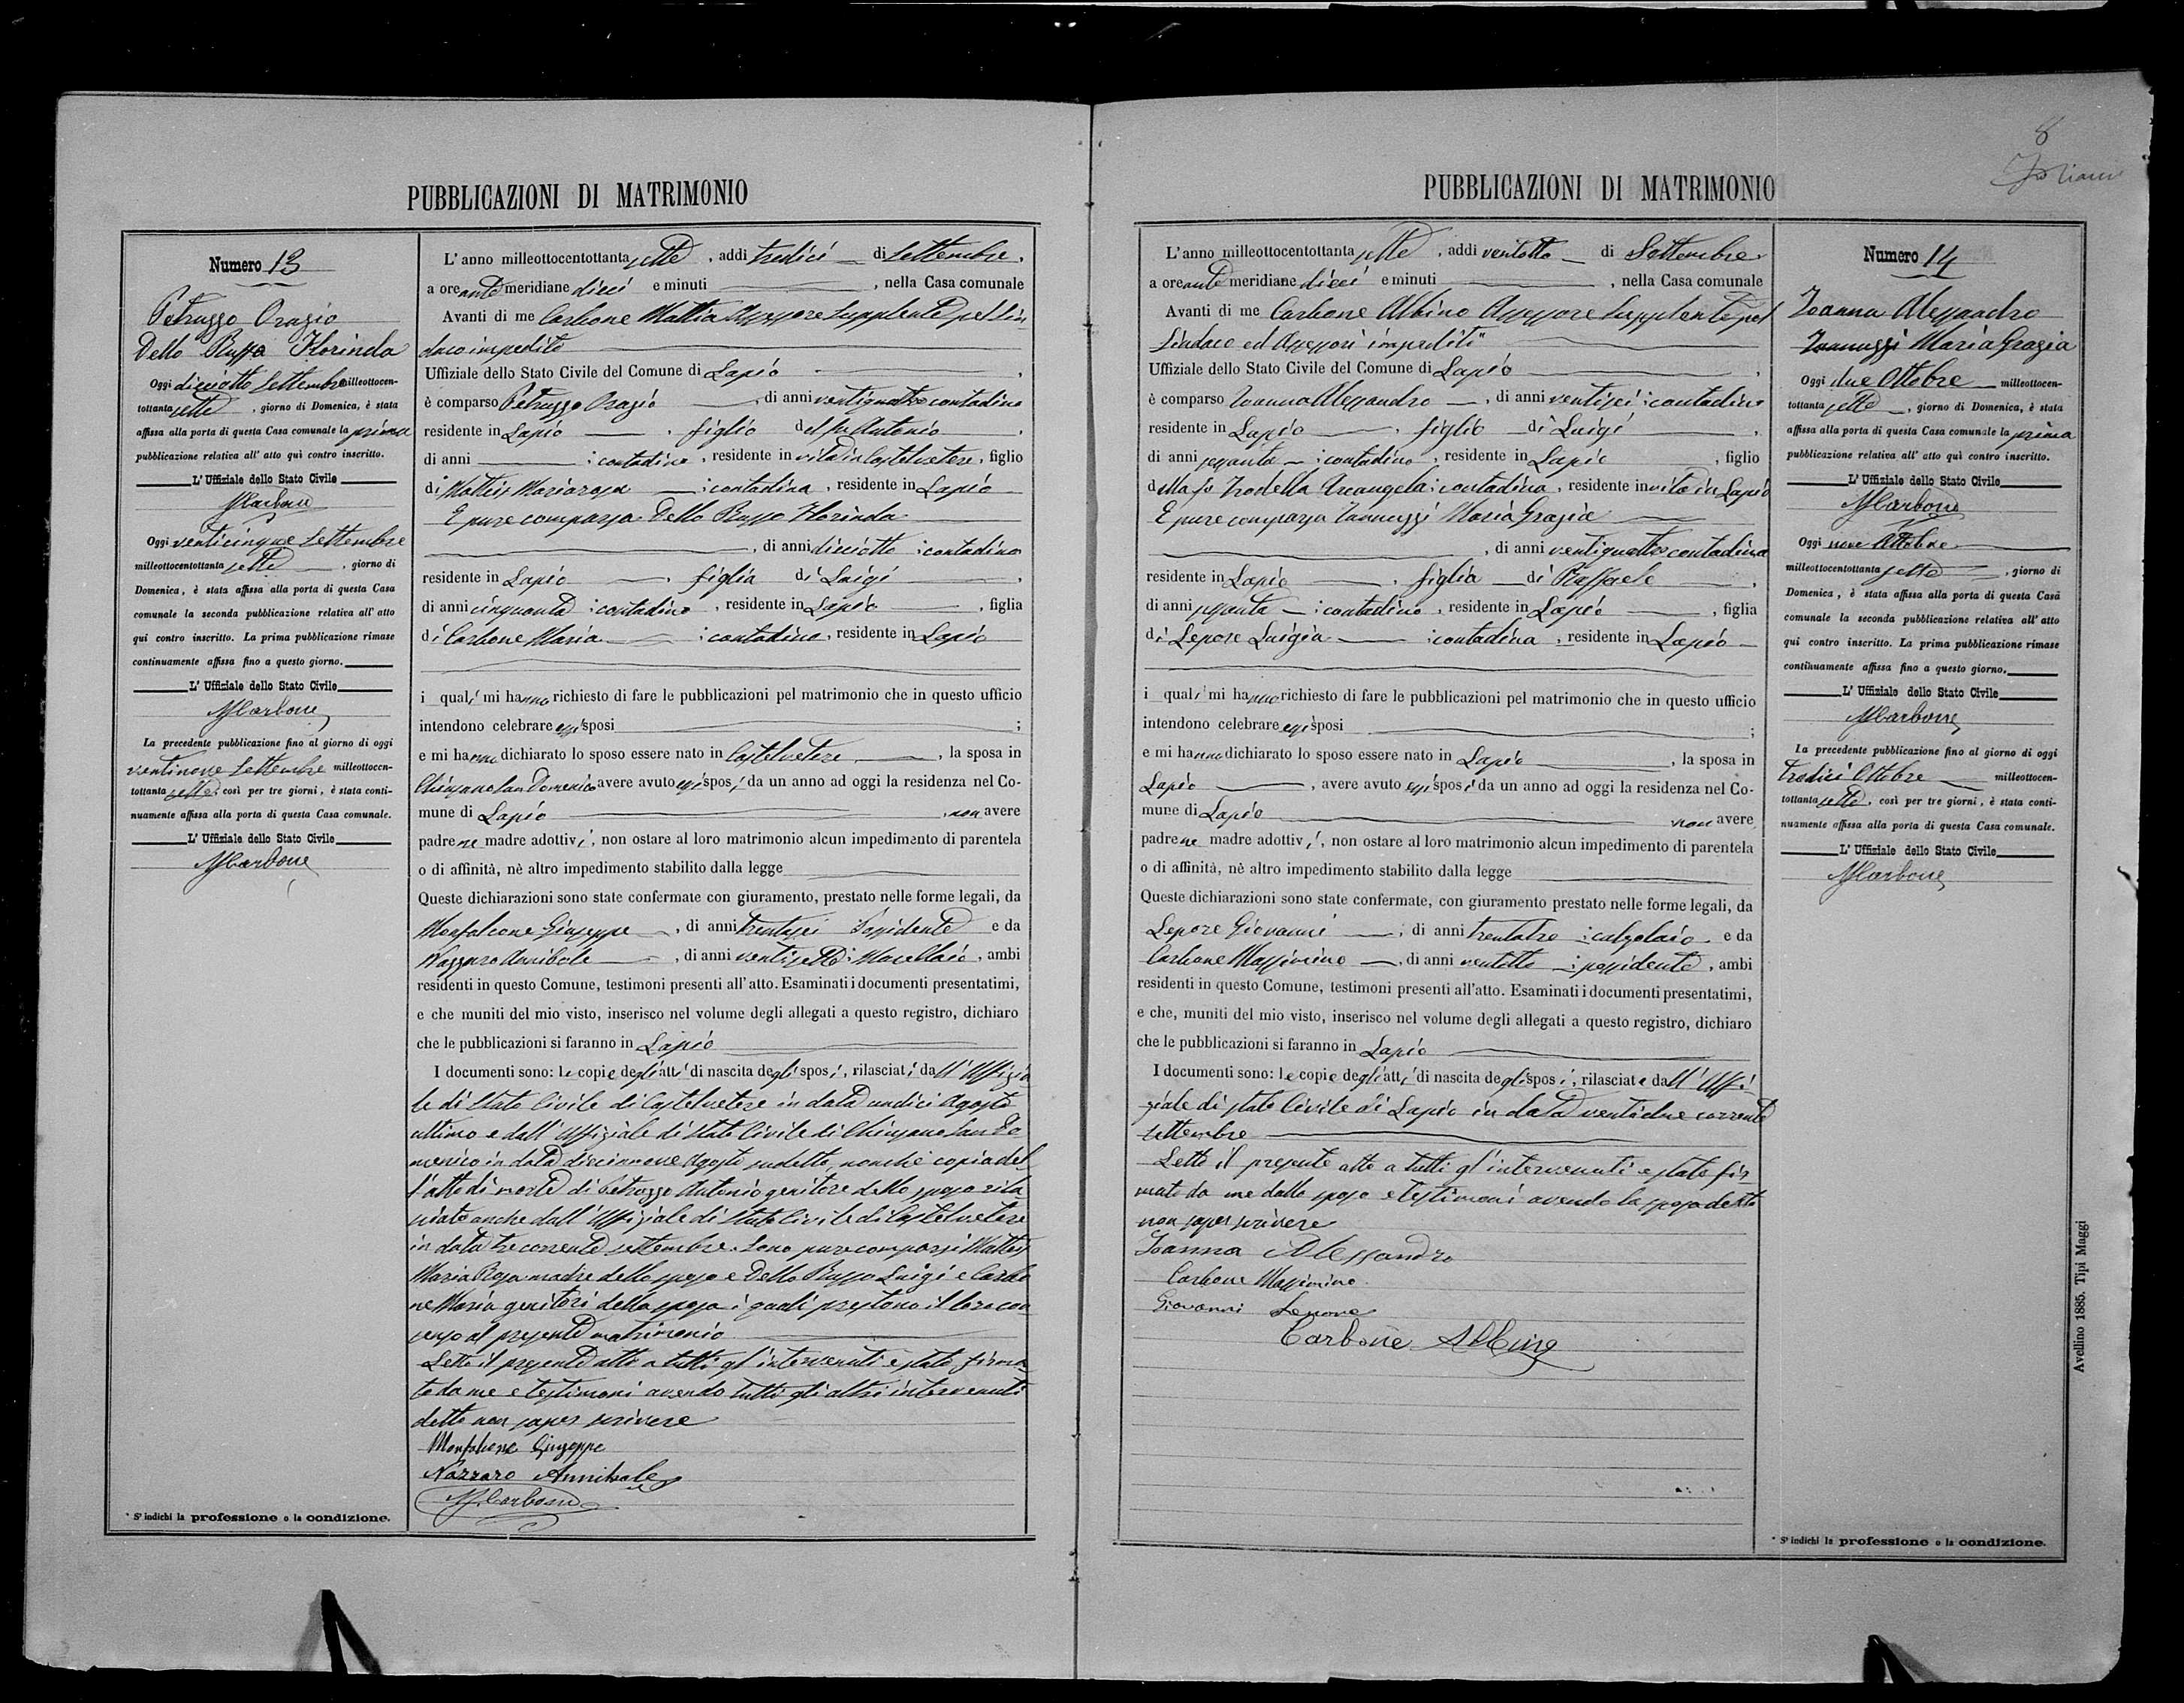 PUBBLICAZIONI DI MATRIMONIO
Numero 13
Petruzzo Orazio
Dello Russo Florinda
Oggi diciotto Settembre milleottocen-
tottanta sette, giorno di Domenica, è stata
affissa alla porta di questa Casa comunale la prima
pubblicazione relativa all' atto quì contro inscritto.
L' Uffiziale dello Stato Civile
MCarbone
Oggi venticinque Settembre
milleottocentottanta sette, giorno di
Domenica, è stata affissa alla porta di questa Casa
comunale la seconda pubblicazione relativa all' atto
qui contro inscritto. La prima pubblicazione rimase
continuamente affissa fino a questo giorno.
L' Uffiziale dello Stato Civile
MCarbone
La precedente pubblicazione fino al giorno di oggi
ventinove Settembre milleottocen-
tottanta sette, così per tre giorni, è stata conti-
nuamente affissa alla porta di questa Casa comunale.
L' Uffiziale dello Stato Civile
MCarbone
* S' indichi la professione o la condizione.
L' anno milleottocentottanta sette, addì tredici di Settembre,
a ore ante meridiane dieci e minuti , nella Casa comunale
Avanti di me Carbone Mattia Assessore Supplente pel Sin
daco impedito
Uffiziale dello Stato Civile del Comune di Lapio ,
è comparso Petruzzo Orazio , di anni ventiquattro contadino
residente in Lapio , figlio del fu Antonio ,
di anni : contadino , residente in vita in Castelvetere, figlio
di Mattis Mariarosa : contadina , residente in Lapio
E pure comparsa Dello Russo Florinda
, di anni diciotto : contadina
residente in Lapio , figlia di Luigi ,
di anni cinquanta : contadino , residente in Lapio , figlia
di Carbone Maria : contadina, residente in Lapio
i quali mi hanno richiesto di fare le pubblicazioni pel matrimonio che in questo ufficio
intendono celebrare essi sposi ;
e mi hanno dichiarato lo sposo essere nato in Castelvetere , la sposa in
Chiusano San Domenico avere avuto essi sposi da un anno ad oggi la residenza nel Co-
mune di Lapio , non avere
padre ne madre adottivi, non ostare al loro matrimonio alcun impedimento di parentela
o di affinità, nè altro impedimento stabilito dalla legge
Queste dichiarazioni sono state confermate con giuramento, prestato nelle forme legali, da
Monfalcone Giuseppe , di anni trentasei Possidente e da
Nazzaro Annibale , di anni ventisette : Macellaio, ambi
residenti in questo Comune, testimoni presenti all' atto. Esaminati i documenti presentatimi,
e che muniti del mio visto, inserisco nel volume degli allegati a questo registro, dichiaro
che le pubblicazioni si faranno in Lapio
I documenti sono: le copie degli atti di nascita degli sposi, rilasciati dall' Uffizia
le di Stato Civile di Castelvetere in data undici Agosto
ultimo e dall' Uffiziale di Stato Civile di Chiusano San Do
menico in data diciannove Agosto sudetto, nonchè copia del
l'atto di morte di Petruzzo Antonio genitore dello sposo rila
sciato anche dall' Uffiziale di Stato Civile di Castelvetere
in data tre corrente settembre. Sono pure comparsi Mattis
Maria Rosa madre dello sposo e Dello Russo Luigi e Carbo
ne Maria genitori della sposa i quali prestono il loro con
senso al presente matrimonio
Letto il presente atto a tutti gl' intervenuti è stato firma
to da me e testimoni avendo tutti gli altri intervenuti
detto non saper scrivere
Monfalcone Giuseppe
Nazzaro Annibale
MCarbone
8
PUBBLICAZIONI DI MATRIMONIO
L' anno milleottocentottanta sette, addì ventotto di Settembre
a ore ante meridiane dieci e minuti , nella Casa comunale
Avanti di me Carbone Albino Assessore Supplente pel
Sindaco ed Assessori impediti
Uffiziale dello Stato Civile del Comune di Lapio ,
è comparso Ioanna Alessandro , di anni ventisei : contadino
residente in Lapio , figlio di Luigi ,
di anni sessanta : contadino, residente in Lapio , figlio
della fu Trodella Arcangela : contadina, residente in vita in Lapio
E pure comparsa Iannuzzi Maria Grazia
, di anni ventiquattro contadina
residente in Lapio , figlia di Raffaele ,
di anni sessanta : contadino, residente in Lapio , figlia
di Lepore Luigia : contadina , residente in Lapio
i quali mi hanno richiesto di fare le pubblicazioni pel matrimonio che in questo ufficio
intendono celebrare essi sposi ;
e mi hanno dichiarato lo sposo essere nato in Lapio , la sposa in
Lapio , avere avuto essi sposi da un anno ad oggi la residenza nel Co-
mune di Lapio non avere
padre ne madre adottivi, non ostare al loro matrimonio alcun impedimento di parentela
o di affinità, nè altro impedimento stabilito dalla legge
Queste dichiarazioni sono state confermate, con giuramento prestato nelle forme legali, da
Lepore Giovanni , di anni trentatre : calzolaio e da
Carbone Massimino , di anni ventotto : possidente, ambi
residenti in questo Comune, testimoni presenti all'atto. Esaminati i documenti presentatimi,
e che, muniti del mio visto, inserisco nel volume degli allegati a questo registro, dichiaro
che le pubblicazioni si faranno in Lapio
I documenti sono: le copie degli atti di nascita degli sposi, rilasciate dall' Uffi
ziale di stato Civile di Lapio in data ventidue corrente
settembre
Letto il presente atto a tutti gl' intervenuti è stato fir
mato da me dallo sposo e testimoni avendo la sposa detto
non saper scrivere
Ioanna Alessandro
Carbone Massimino
Giovanni Lepore
Carbone Albino
Numero 14
Ioanna Alessandro
Iannuzzi Maria Grazia
Oggi due Ottobre milleottocen-
tottanta sette, giorno di Domenica, è stata
affissa alla porta di questa Casa comunale la prima
pubblicazione relativa all' atto quì contro inscritto.
L' Uffiziale dello Stato Civile
MCarbone
Oggi nove Ottobre
milleottocentottanta sette, giorno di
Domenica, è stata affissa alla porta di questa Casa
comunale la seconda pubblicazione relativa all' atto
qui contro inscritto. La prima pubblicazione rimase
continuamente affissa fino a questo giorno.
L' Uffiziale dello Stato Civile
MCarbone
La precedente pubblicazione fino al giorno di oggi
tredici Ottobre milleottocen-
tottanta sette, così per tre giorni, è stata conti-
nuamente affissa alla porta di questa Casa comunale.
L' Uffiziale dello Stato Civile
MCarbone
* S' indichi la professione o la condizione.
Avellino 1885. Tipi Maggi